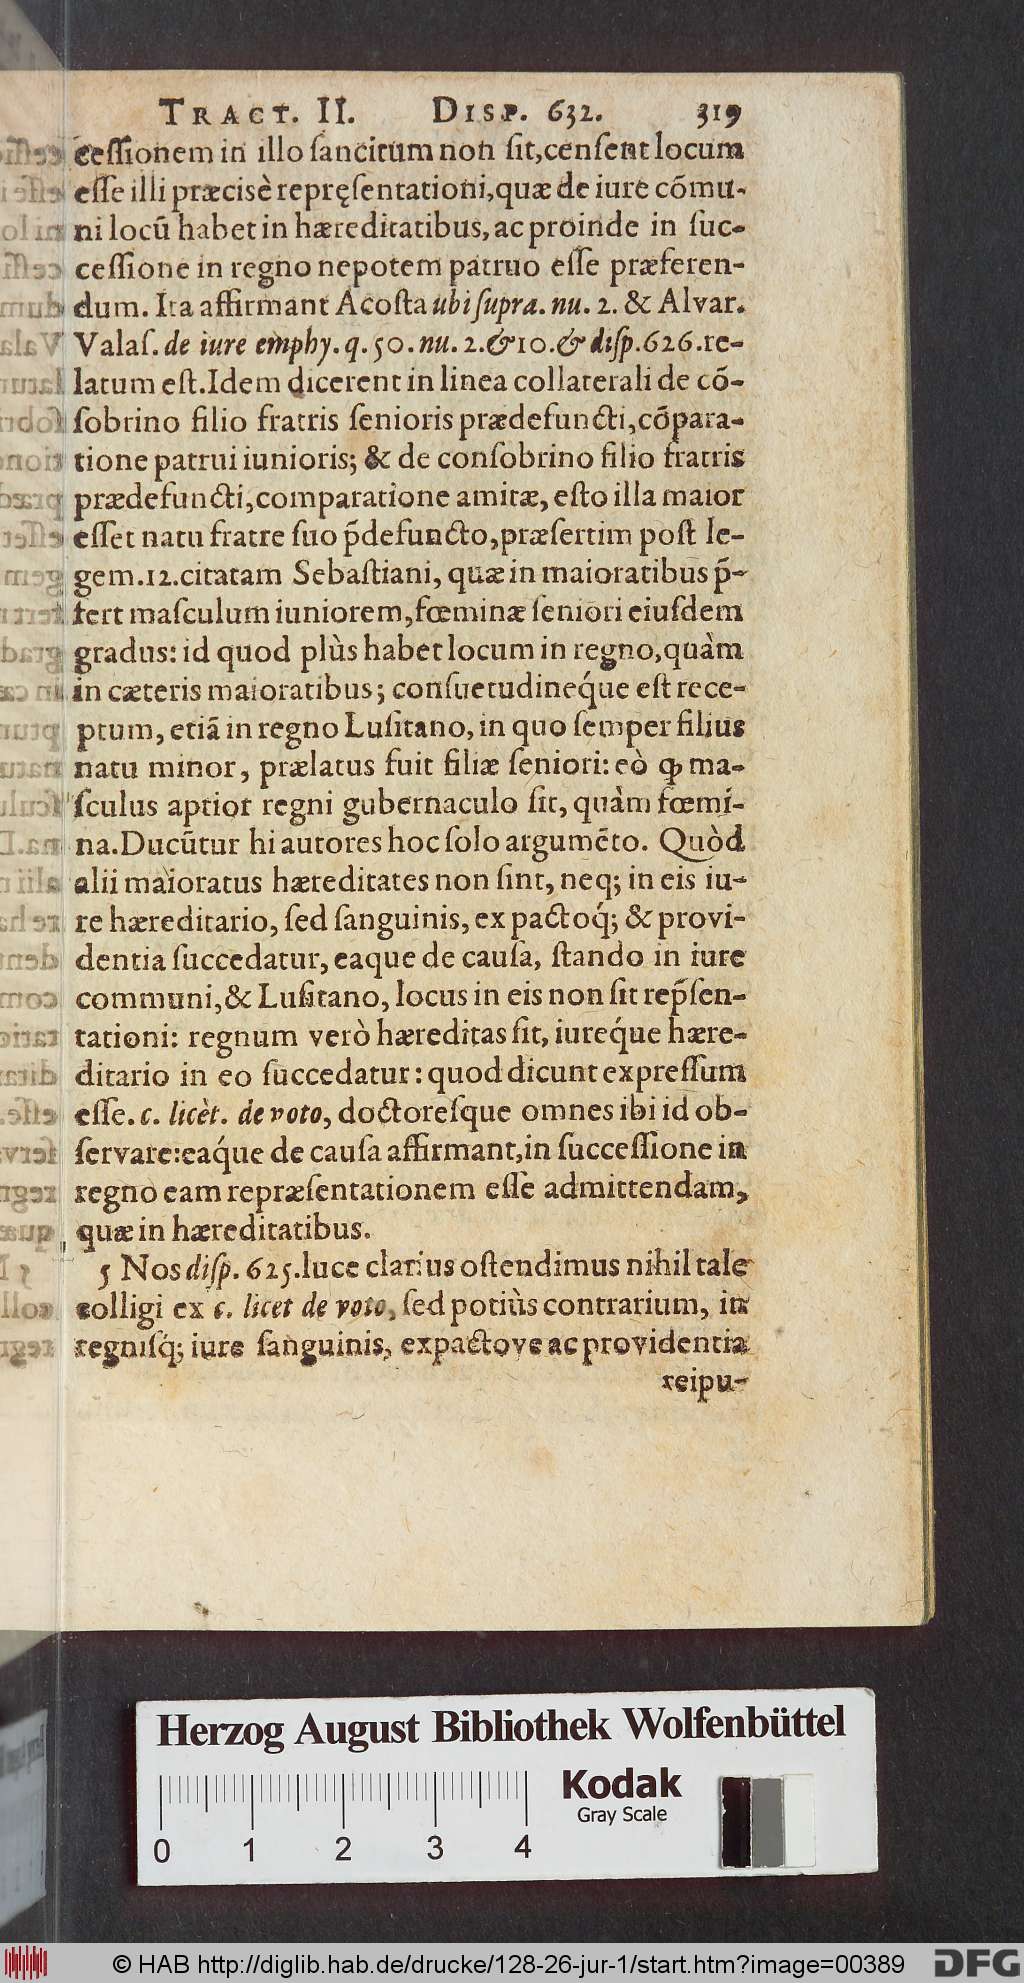 TRACT. II. DISP. 632. 319
ceſſionem in illo ſancitum non ſit, cenſent locum
eſſe illi præcisè repręſentationi, quæ de iure cõmu-
ni locũ habet in hæreditatibus, ac proinde in ſuc-
ceſſione in regno nepotem patruo eſſe præferen-
dum. Ita affirmant Acoſta ubi ſupra. nu. 2. & Alvar.
Valaſ. de iure emphy. q. 50. nu. 2. & 10. & diſp. 626. re-
latum eſt. Idem dicerent in linea collaterali de cõ-
ſobrino filio fratris ſenioris prædefuncti, cõpara-
tione patrui iunioris; & de conſobrino filio fratris
prædefuncti, comparatione amitæ, eſto illa maior
eſſet natu fratre ſuo p̃defuncto, præſertim poſt le-
gem. 12. citatam Sebaſtiani, quæ in maioratibus p̃-
fert maſculum iuniorem, fœminæ ſeniori eiuſdem
gradus: id quod plùs habet locum in regno, quàm
in cæteris maioratibus; conſuetudineq́ue eſt rece-
ptum, etiã in regno Luſitano, in quo ſemper filius
natu minor, prælatus fuit filiæ ſeniori: eò ꝙ ma-
ſculus aptior regni gubernaculo ſit, quàm fœmi-
na. Ducũtur hi autores hoc ſolo argumẽto. Quòd
alii maioratus hæreditates non ſint, neq; in eis iu-
re hæreditario, ſed ſanguinis, ex pactoq́; & provi-
dentia ſuccedatur, eaque de cauſa, ſtando in iure
communi, & Luſitano, locus in eis non ſit rep̃ſen-
tationi: regnum verò hæreditas ſit, iureq́ue hære-
ditario in eo ſuccedatur: quod dicunt expreſſum
eſſe. c. licèt. de voto, doctoreſque omnes ibi id ob-
ſervare: eaq́ue de cauſa affirmant, in ſucceſſione in
regno eam repræſentationem eſſe admittendam,
quæ in hæreditatibus.
5 Nos diſp. 625. luce clarius oſtendimus nihil tale
colligi ex c. licet de voto, ſed potiùs contrarium, in
regniſq́; iure ſanguinis, expactove ac providentia
reipu-
Herzog August Bibliothek Wolfenbüttel
Kodak
Gray Scale
0 1 2 3 4
© HAB http://diglib.hab.de/drucke/128-26-jur-1/start.htm?image=00389
DFG